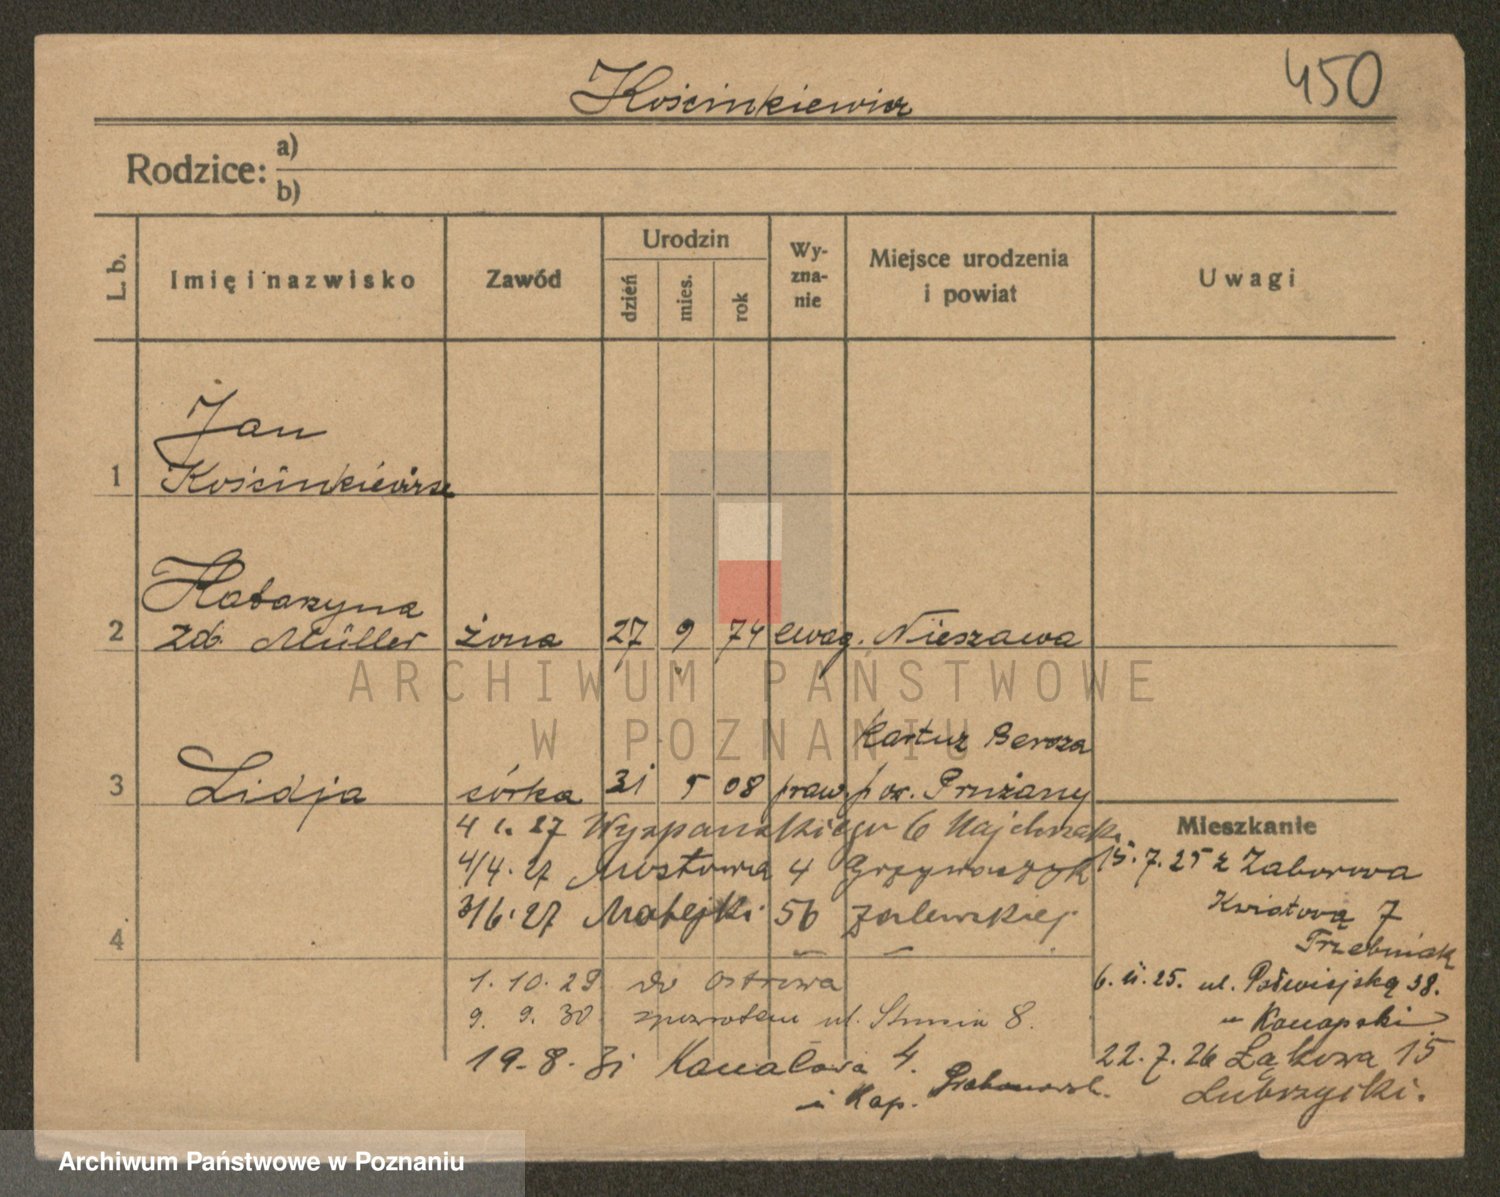 450
Kościnkiewicz
Rodzice: a)
b)
L. b.
Imię i nazwisko
Zawód
Urodzin
dzień
mies.
rok
Wy-
zna-
nie
Miejsce urodzenia
i powiat
Uwagi
Jan
1 Kościnkiewicz
Katarzyna
2 zd. Müller żona 27 9 74 ewag. Nieszawa
ARCHIWUM PAŃSTWOWE
W POZNANIU
Kartuz Bereza
3 Lidja córka 31 5 08 praw. pow. Prużany
4 1. 27 Wyspiańskiego 6 Majchrzak
4/4. 27 Mostowa 4 Grzywaczyk
3/6. 27 Matejki 56 Zalewskiej
4
1. 10. 29 do Ostrowa
9. 9. 30 zpowrotem ul. Strusia 8.
19. 8. 31 Kanałowa 4.
u Kap.
Mieszkanie
15. 7. 25 z Zaborowa
Kwiatową 7
Trzebniak
6. 11. 25. ul. Półwiejską 38.
u Konopski
22. 7. 26 Łąkowa 15
Lubrzycki.
Archiwum Państwowe w Poznaniu